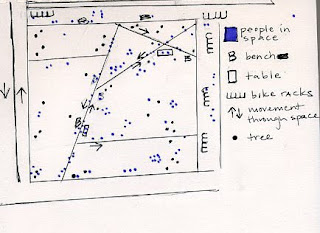 people in
space
B bench
table
bike racks
movement
through space
tree
B
B
B